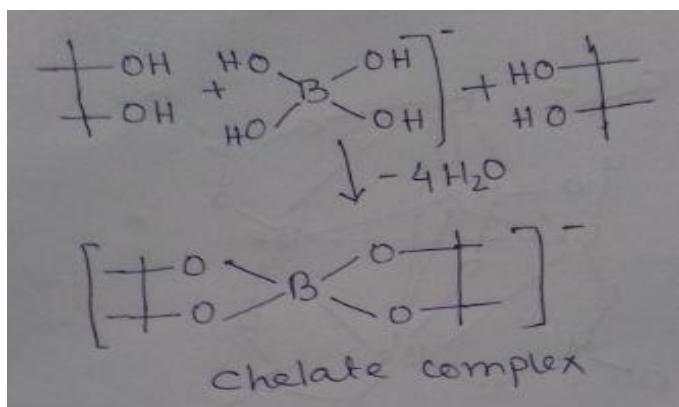 OH HO OH ]⁻ HO
+ B +
OH HO OH HO
↓ - 4H₂O
[ O O ]⁻
B
O O
Chelate complex